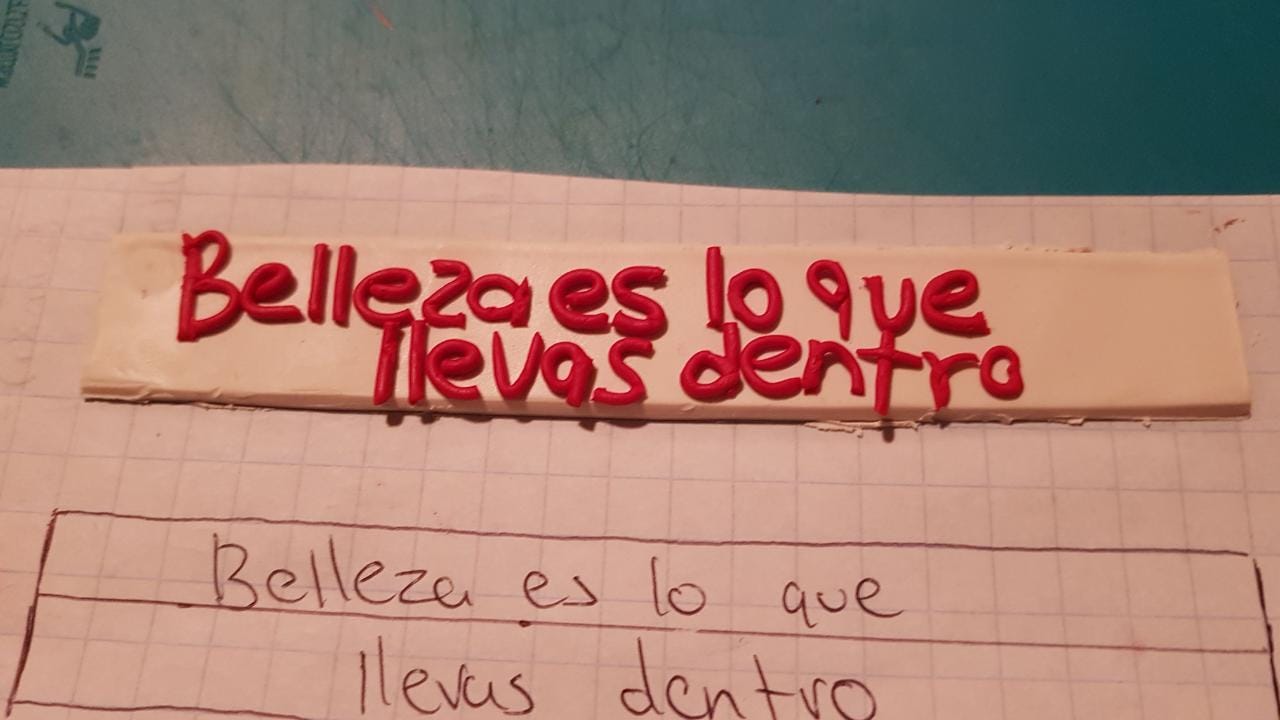 Belleza es lo que
llevas dentro
Belleza es lo que
llevas dentro